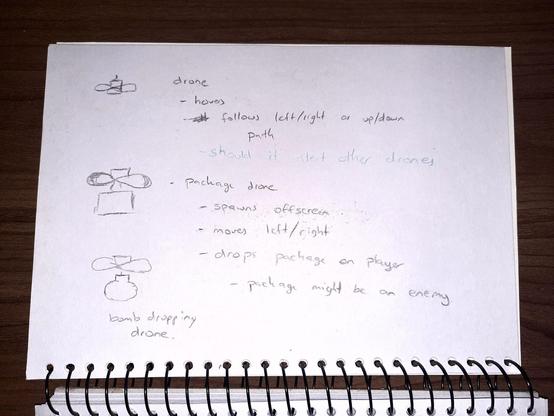 drone
- hovers
- follows left/right or up/down
path
- should it alert other drones
- package drone
- spawns offscreen
- moves left/right
- drops package on player
- package might be an enemy
bomb dropping
drone.